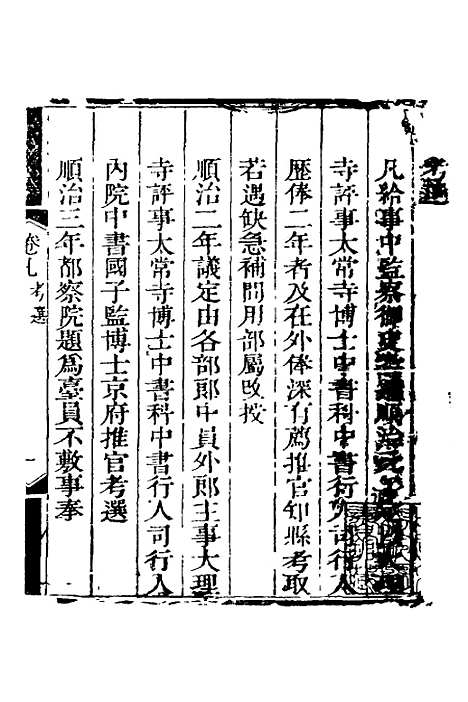 考選
凡給事中監察御史
寺評事太常寺博士中書科中書行人司行人
歷俸二年者及在外俸深有薦推官知縣考取
若遇缺急補間用部屬改授
順治二年議定由各部郎中員外郎主事大理
寺評事太常寺博士中書科中書行人司行人
內院中書國子監博士京府推官考選
順治三年都察院題爲臺員不敷事奉
卷九 考選 一